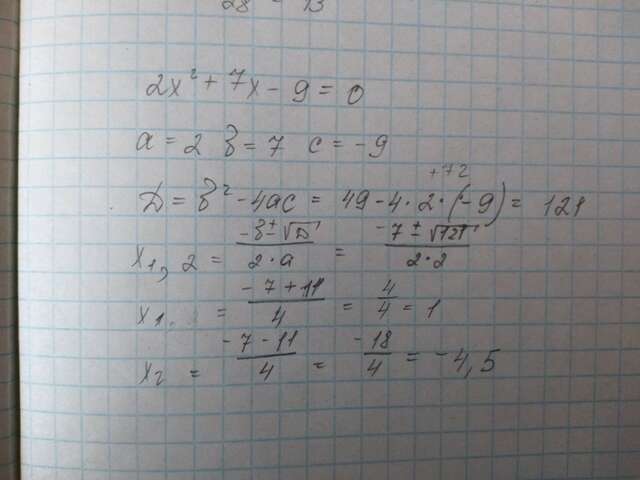 28 - 13
2x² + 7x - 9 = 0
a = 2 b = 7 c = -9
+72
D = b² - 4ac = 49 - 4 · 2 · (-9) = 121
x₁,₂ = (-b ± √D)/(2·a) = (-7 ± √121)/(2·2)
x₁ = (-7 + 11)/4 = 4/4 = 1
x₂ = (-7 - 11)/4 = -18/4 = -4,5